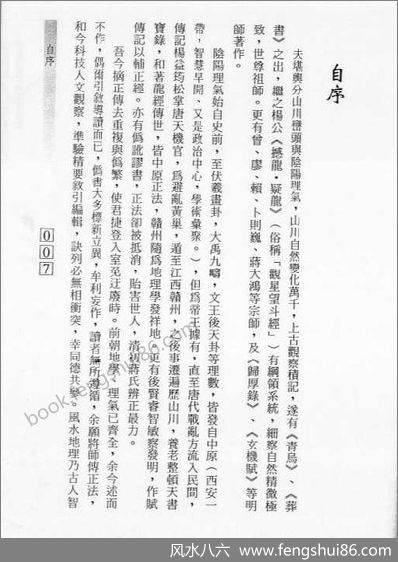 自序
夫堪輿分山川巒頭與陰陽理氣，山川自然變化萬千，上古觀察積記，遂有《青烏》、《葬
書》之出，繼之楊公《撼龍·疑龍》（俗稱「觀星望斗經」）有綱領系統，細察自然精微極
致，世尊祖師。更有曾、廖、賴、卜則巍、蔣大鴻等宗師，及《歸厚錄》、《玄機賦》等明
師著作。
陰陽理氣始自史前，至伏羲畫卦，大禹九疇，文王後天卦等理數，皆發自中原（西安一
帶，智慧早開、又是政治中心，學術彙聚。），但爲帝王據有，直至唐代戰亂方流入民間，
傳記楊益筠松掌唐天機官，爲避亂黃巢，遁至江西贛州，之後事遷遍歷山川，養老整頓天書
寶錄，和著龍經傳世，皆中原正法，贛州隨爲地理學發祥地。更有後賢睿智敏察發明，作賦
傳記以輔正經。亦有僞訛謬書，正法卻被抵消，貽害世人，清初蔣氏辨正最力。
吾今摘正傳去重複與僞繁，使君捷登入室至迂廢時。前朝地學、理氣已齊全，余今述而
不作，偶爾引敘導讀而已，僞書大多標新立異，牟利妄作，讀者無所遵循，余願將師傳正法，
和今科技人文觀察，準驗精要敘引編輯，訣列必無相衝突，幸同德共參。風水地理乃古人智
自序
007
book.fengshui86.com
风水八六 www.fengshui86.com